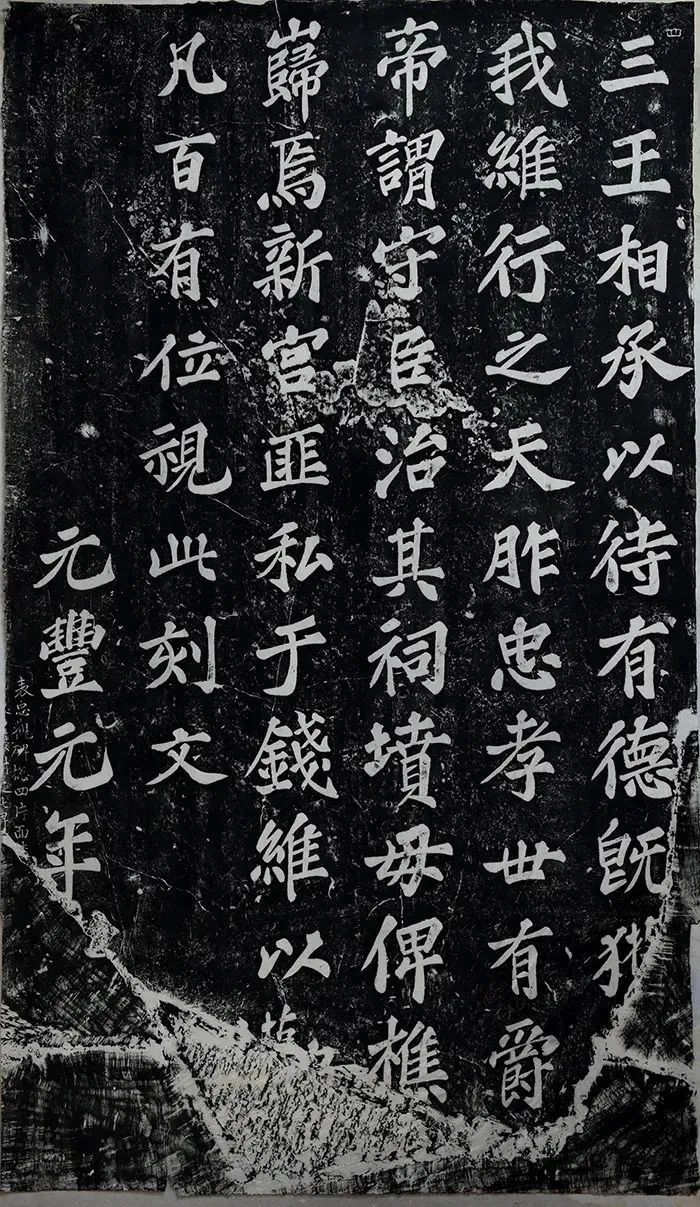 四
三王相承以待有德既
我維行之天胙忠孝世有爵
帝謂守臣治其祠墳毋俾樵
巋焉新宮匪私于錢維以
凡百有位視此刻文
元豐元年
表忠四片面